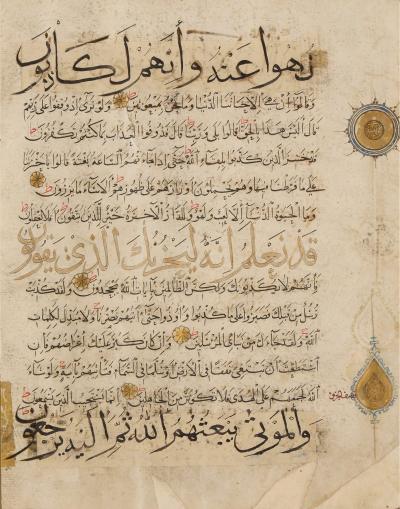 نهوا عنه وإنهم لكاذبون
وقالوا إن هي إلا حياتنا الدنيا وما نحن بمبعوثين ولو ترى إذ وقفوا على ربهم
قال أليس هذا بالحق قالوا بلى وربنا قال فذوقوا العذاب بما كنتم تكفرون
قد خسر الذين كذبوا بلقاء الله حتى إذا جاءتهم الساعة بغتة قالوا يا حسرتنا
على ما فرطنا فيها وهم يحملون أوزارهم على ظهورهم ألا ساء ما يزرون
وما الحيوة الدنيا إلا لعب ولهو وللدار الآخرة خير للذين يتقون أفلا تعقلون
قد نعلم إنه ليحزنك الذي يقولون
فإنهم لا يكذبونك ولكن الظالمين بآيات الله يجحدون ولقد كذبت
رسل من قبلك فصبروا على ما كذبوا وأوذوا حتى أتاهم نصرنا ولا مبدل لكلمات
الله ولقد جاءك من نبإ المرسلين وإن كان كبر عليك إعراضهم فإن
استطعت أن تبتغي نفقا في الأرض أو سلما في السماء فتأتيهم بآية ولو شاء
الله لجمعهم على الهدى فلا تكونن من الجاهلين إنما يستجيب الذين يسمعون
والموتى يبعثهم الله ثم إليه يرجعون